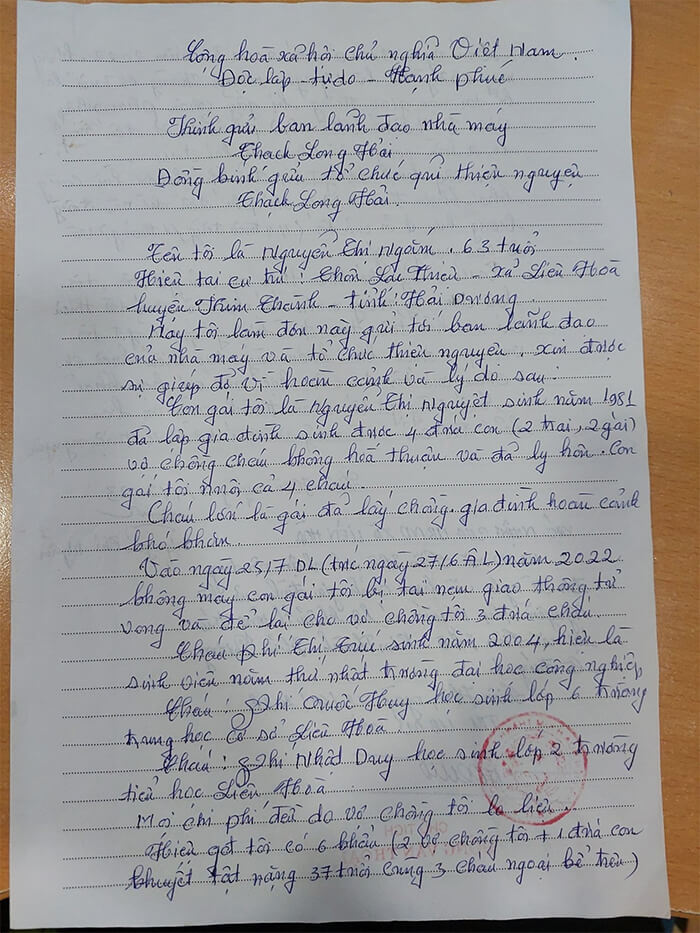 Cộng hoà xã hội chủ nghĩa Việt Nam.
Độc lập - tự do - Hạnh phúc
Kính gửi ban lãnh đạo nhà máy
Thạch Long Hải
Đồng kính gửi tổ chức quĩ thiện nguyện
Thạch Long Hải.
Tên tôi là Nguyễn Thị Ngoãm, 63 tuổi
Hiện tại cư trú: Thôn Lai Thiều - xã Liên Hoà
huyện Kim Thành - tỉnh: Hải Dương
Nay tôi làm đơn này gửi tới ban lãnh đạo
của nhà máy và tổ chức thiện nguyện, xin được
sự giúp đỡ vì hoàn cảnh và lý do sau:
Con gái tôi là Nguyễn Thị Nguyệt sinh năm 1981
đã lập gia đình sinh được 4 đứa con (2 trai, 2 gái)
vợ chồng cháu không hoà thuận và đã ly hôn. Con
gái tôi nuôi cả 4 cháu.
Cháu lớn là gái đã lấy chồng, gia đình hoàn cảnh
khó khăn.
Vào ngày 25/7 DL (tức ngày 27/6 ÂL) năm 2022
không may con gái tôi bị tai nạn giao thông tử
vong và để lại cho vợ chồng tôi 3 đứa cháu.
Cháu Phí Thị Trúc sinh năm 2004, hiện là
sinh viên năm thứ nhất trường đại học công nghiệp,
Cháu: Phí Quốc Huy học sinh lớp 6 trường
trung học cơ sở Liên Hoà.
Cháu: Phí Nhật Duy học sinh lớp 2 trường
tiểu học Liên Hoà
Mọi chi phí đều do vợ chồng tôi lo liệu.
Hiện gđ tôi có 6 khẩu (2 vợ chồng tôi + 1 đứa con
khuyết tật nặng 37 tuổi cùng 3 cháu ngoại kể trên)